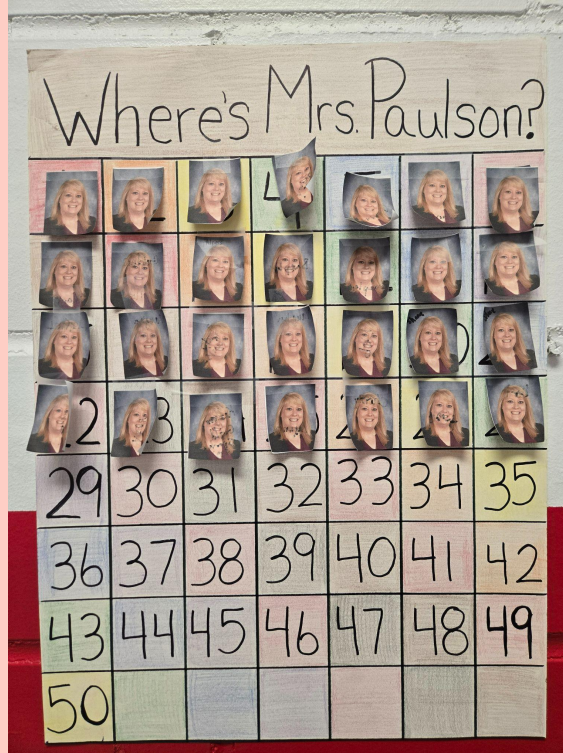 Where's Mrs. Paulson?
4
2
3
29 30 31 32 33 34 35
36 37 38 39 40 41 42
43 44 45 46 47 48 49
50